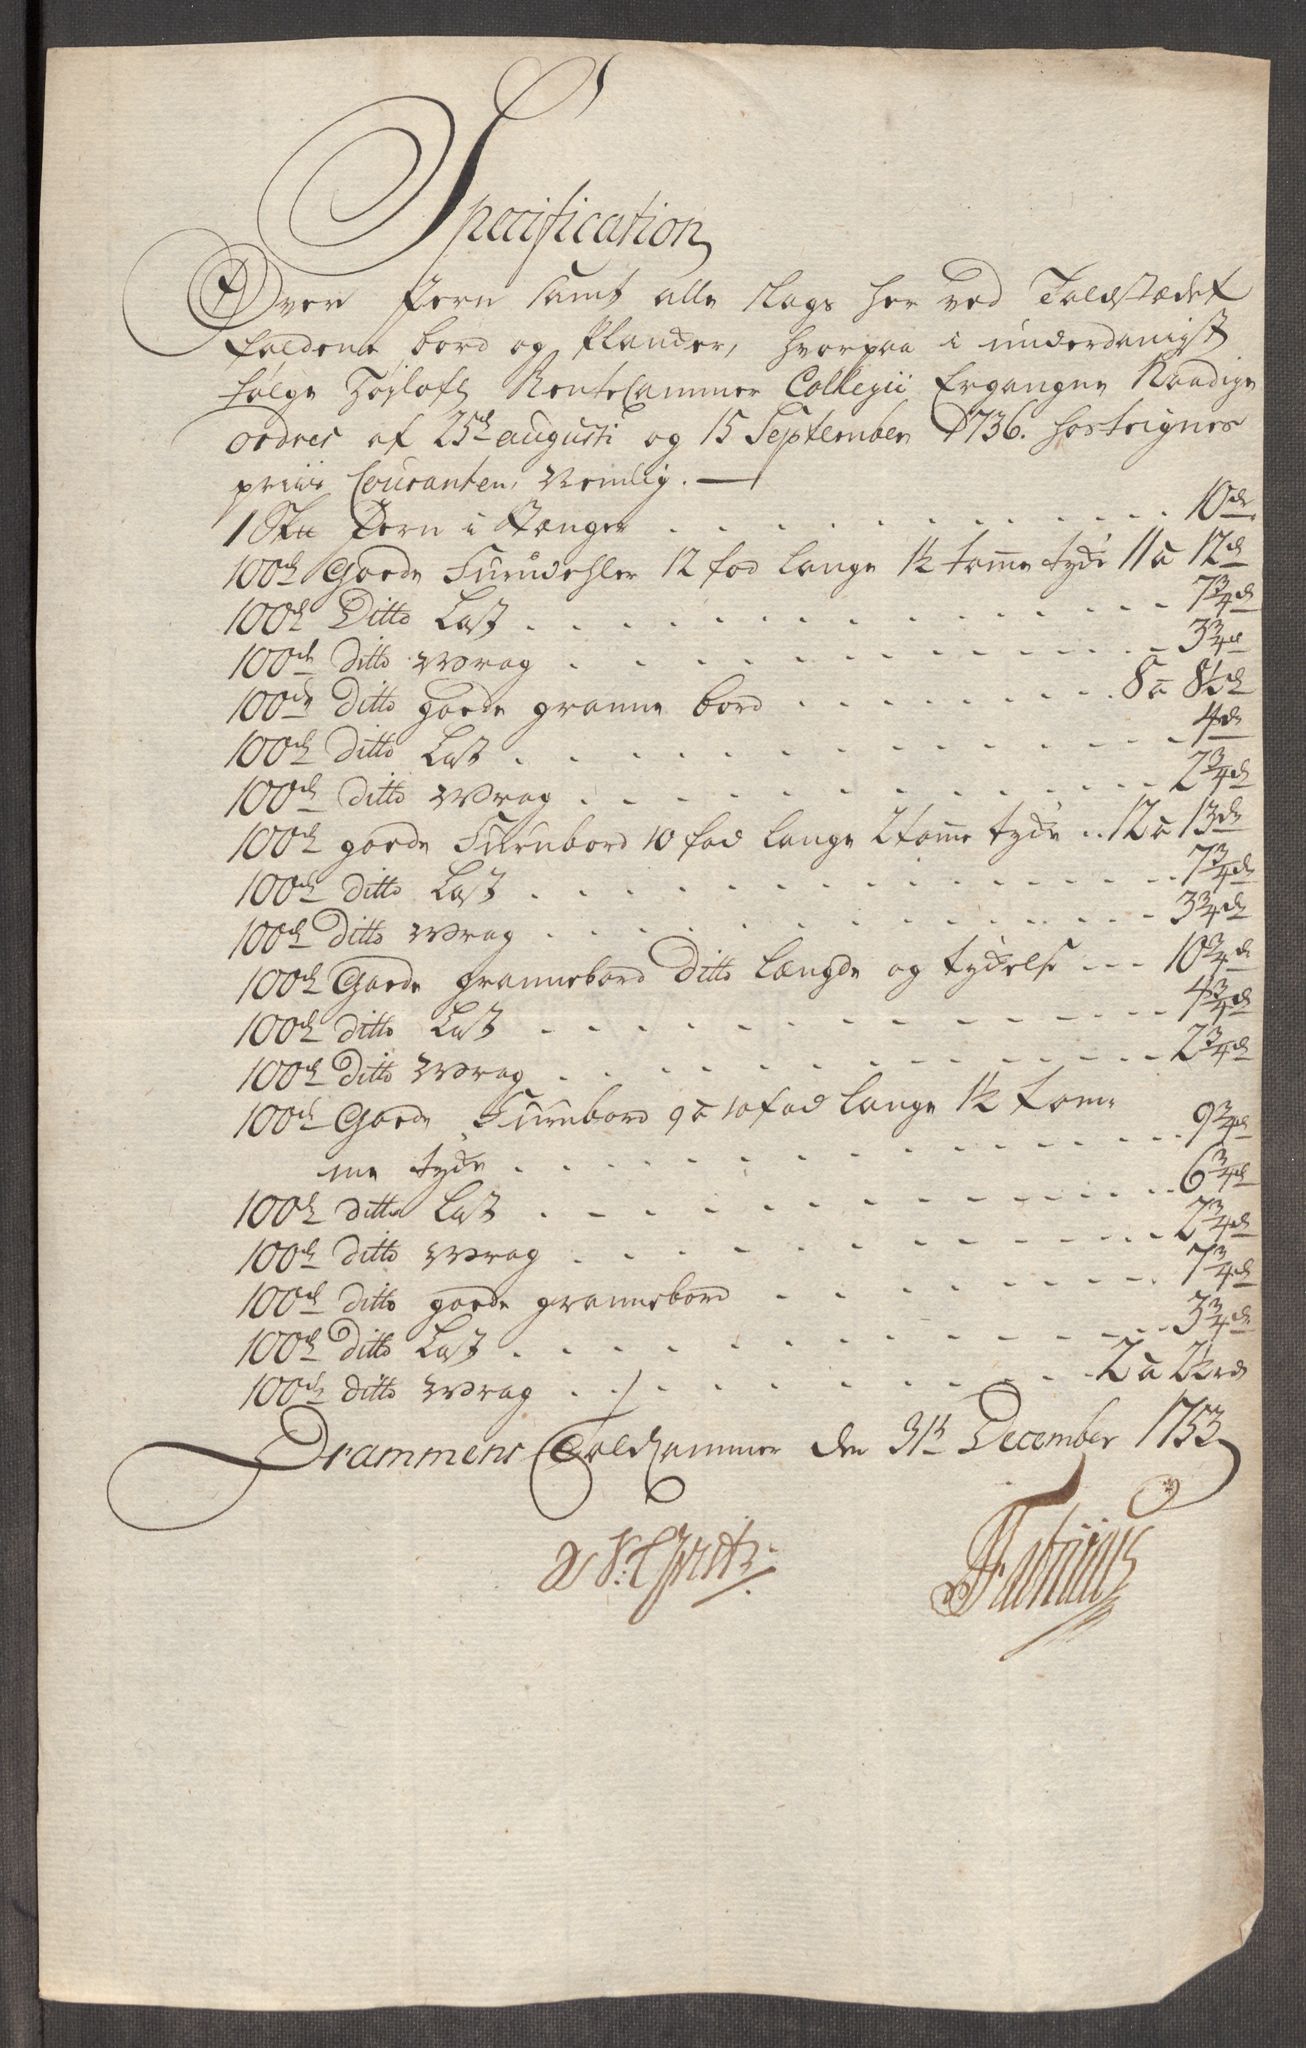 Specification
Over Jern samt alle slags her ved Toldstædet
faldene bord og Plancker, hvorpaa i underdanigst
følge Høylofl: RenteCammer Collegii Ergangne Naadige
ordres af 25de augusti og 15 September 1736. hostegnes
priis Couranten, Nemlig.
1 Sk℔ Jern i Stænger . . . . . . 10 rd
100de Goede Furudehler 12 fod lange 1½ tomme tyche 11 a 12 rd
100de Ditto Last . . . . . . 7¾ rd
100de ditto Wrag . . . . . . 3¾ rd
100de ditto goede granne bord . . . . . . 8 a 8½ rd
100de ditto Last . . . . . . 4 rd
100de ditto Wrag . . . . . . 2¾ rd
100de goede Furubord 10 fod lange 2 tomme tycke .. 12 a 13 rd
100de ditto Last . . . . . . 7¾ rd
100de ditto Wrag . . . . . . 3¾ rd
100de Goede grannebord Ditto Længde og tyckelse . . . 10¾ rd
100de ditto Last . . . . . . 4¾ rd
100de ditto Wrag . . . . . . 2¾ rd
100de Goede Furubord 9 a 10 fod lange 1½ tom-
me tycke . . . . . . 9¾ rd
100de ditto Last . . . . . . 6¾ rd
100de ditto Wrag . . . . . . 2¾ rd
100de ditto goede grannebord . . . . . . 7¾ rd
100de ditto Last . . . . . . 3¾ rd
100de ditto Wrag . . . . . . 2 a 2½ rd
Drammens ToldCammer den 31te December 1753